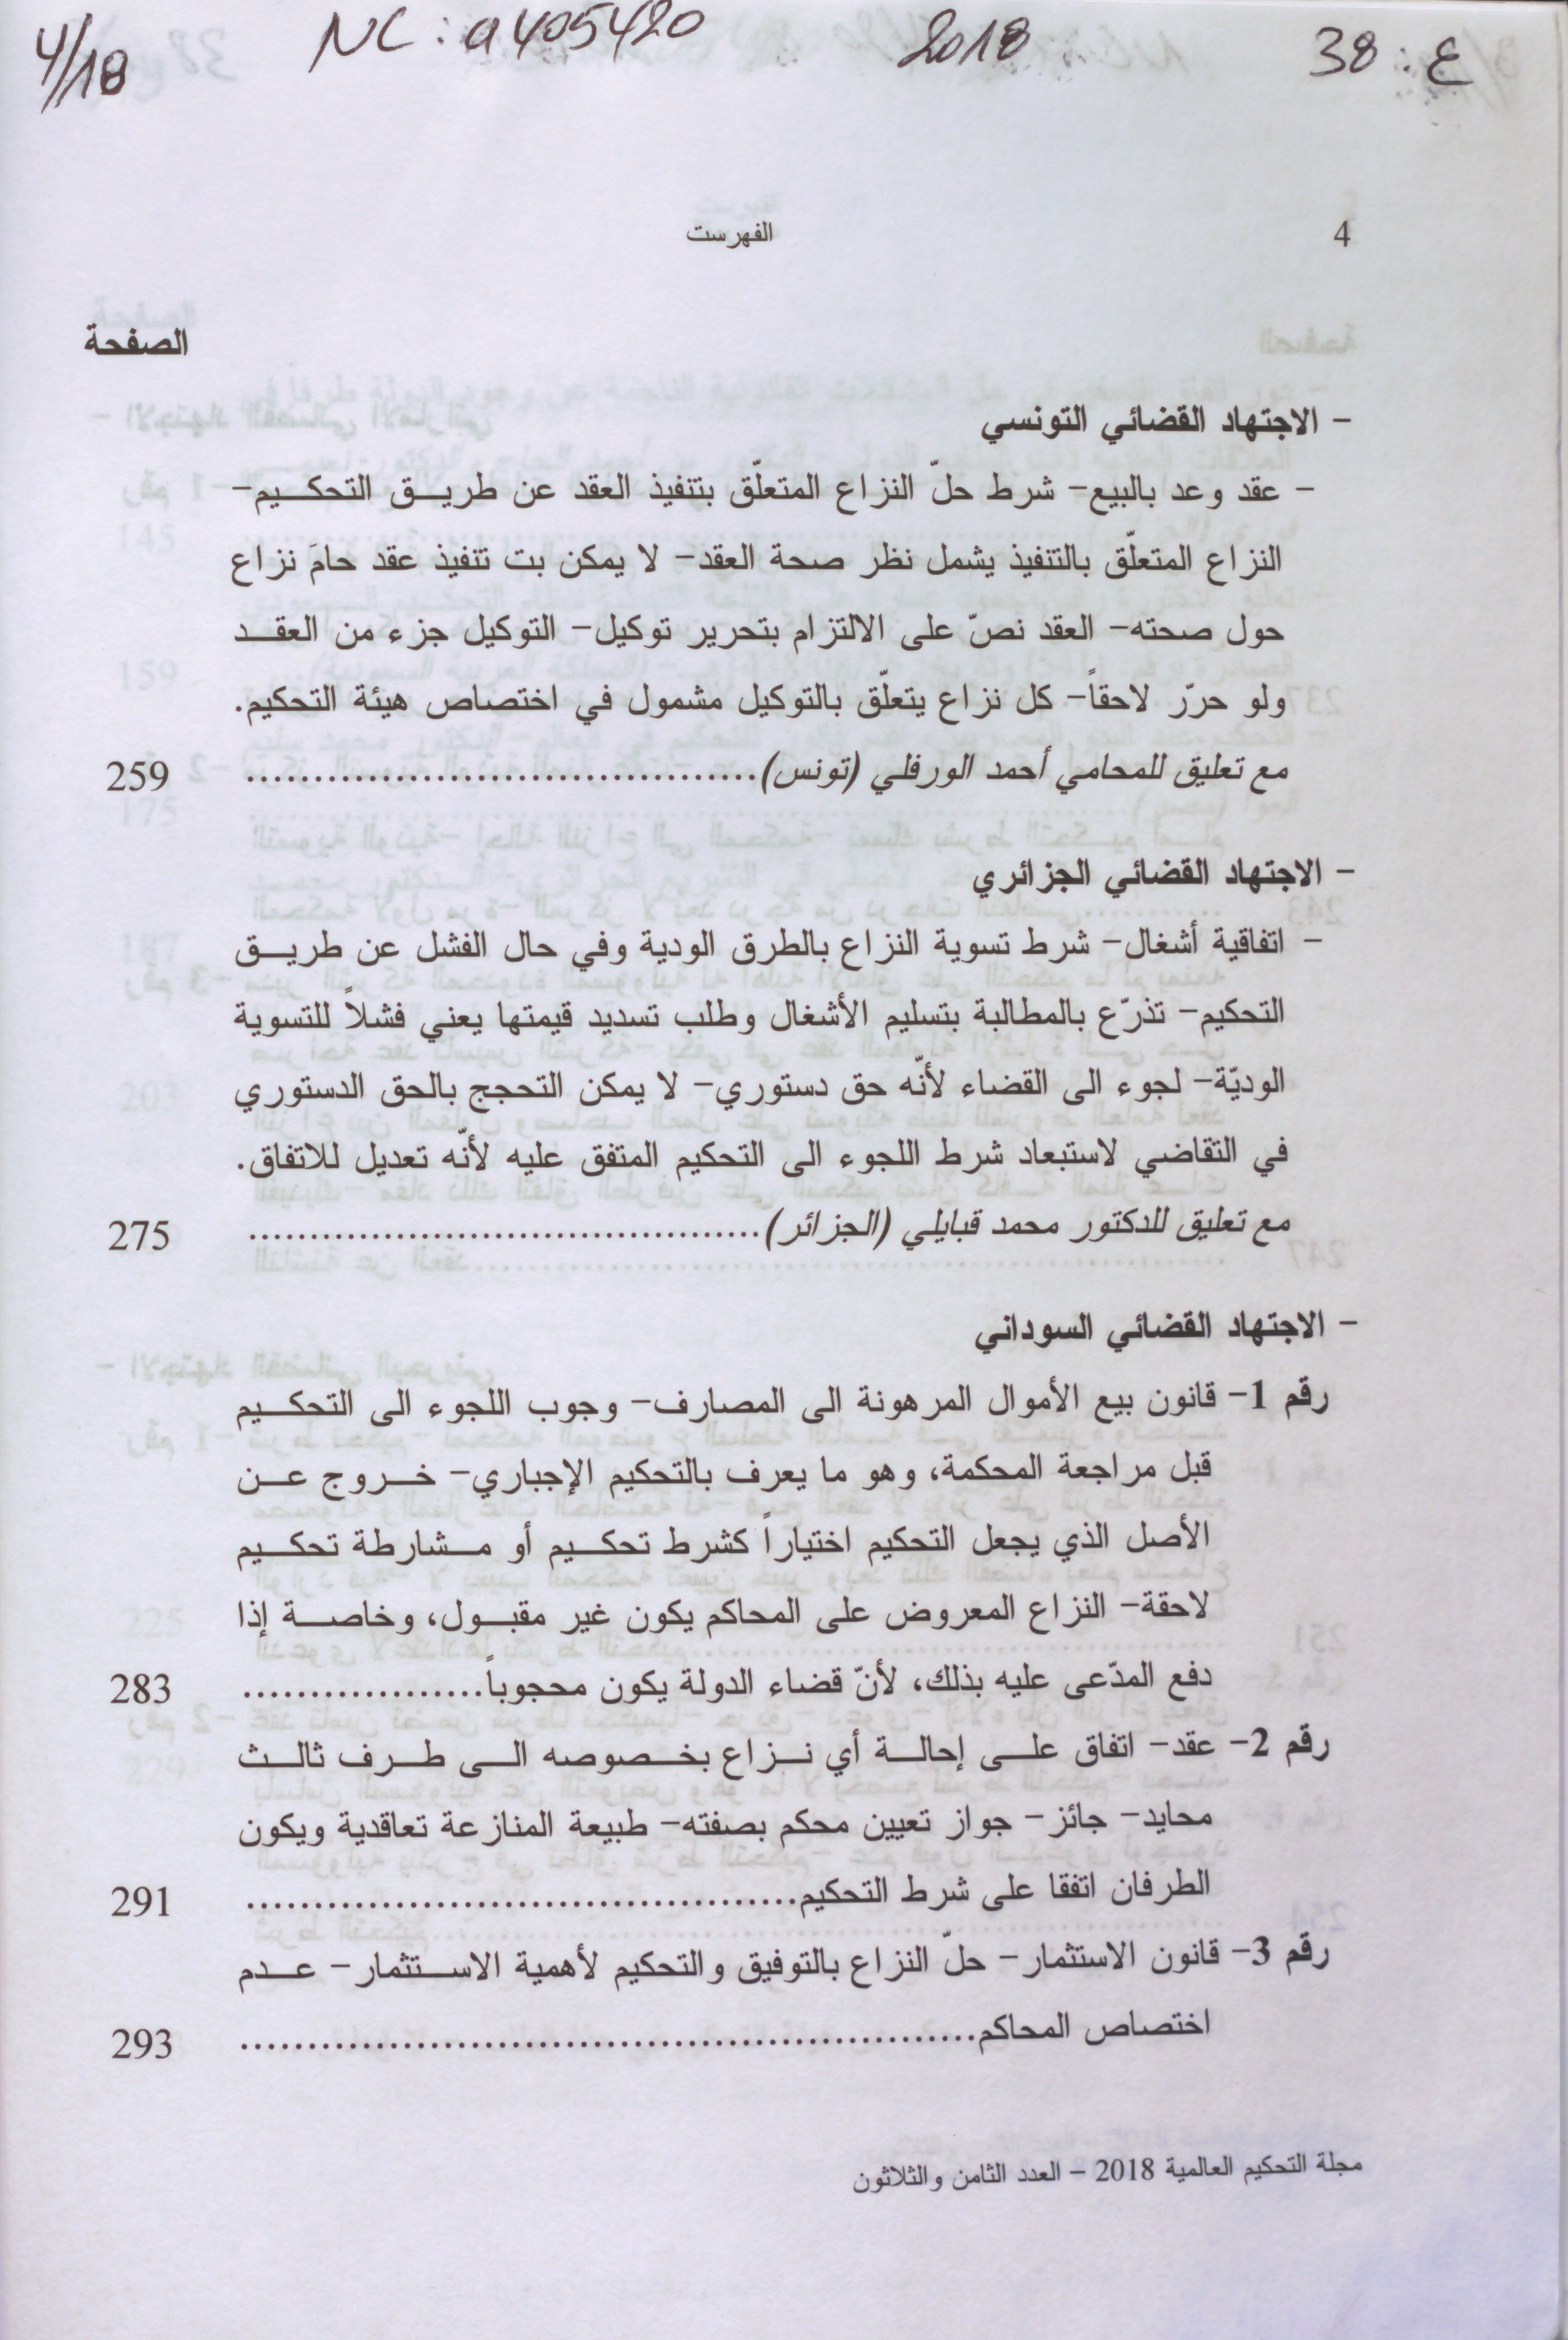 4/18 NC : a405420 2018 ع : 38
4 الفهرست
الصفحة
– الاجتهاد القضائي التونسي
– عقد وعد بالبيع– شرط حلّ النزاع المتعلّق بتنفيذ العقد عن طريق التحكيم–
النزاع المتعلّق بالتنفيذ يشمل نظر صحة العقد– لا يمكن بت تنفيذ عقد حامَ نزاع
حول صحته– العقد نصّ على الالتزام بتحرير توكيل– التوكيل جزء من العقد
ولو حرّر لاحقاً– كل نزاع يتعلّق بالتوكيل مشمول في اختصاص هيئة التحكيم.
مع تعليق للمحامي أحمد الورفلي (تونس)...................................... 259
– الاجتهاد القضائي الجزائري
– اتفاقية أشغال– شرط تسوية النزاع بالطرق الودية وفي حال الفشل عن طريق
التحكيم– تذرّع بالمطالبة بتسليم الأشغال وطلب تسديد قيمتها يعني فشلاً للتسوية
الوديّة– لجوء الى القضاء لأنّه حق دستوري– لا يمكن التحجج بالحق الدستوري
في التقاضي لاستبعاد شرط اللجوء الى التحكيم المتفق عليه لأنّه تعديل للاتفاق.
مع تعليق للدكتور محمد قبايلي (الجزائر)...................................... 275
– الاجتهاد القضائي السوداني
رقم 1– قانون بيع الأموال المرهونة الى المصارف– وجوب اللجوء الى التحكيم
قبل مراجعة المحكمة، وهو ما يعرف بالتحكيم الإجباري– خروج عن
الأصل الذي يجعل التحكيم اختياراً كشرط تحكيم أو مشارطة تحكيم
لاحقة– النزاع المعروض على المحاكم يكون غير مقبول، وخاصة إذا
دفع المدّعى عليه بذلك، لأنّ قضاء الدولة يكون محجوباً.................. 283
رقم 2– عقد– اتفاق على إحالة أي نزاع بخصوصه الى طرف ثالث
محايد– جائز– جواز تعيين محكم بصفته– طبيعة المنازعة تعاقدية ويكون
الطرفان اتفقا على شرط التحكيم......................................... 291
رقم 3– قانون الاستثمار– حلّ النزاع بالتوفيق والتحكيم لأهمية الاستثمار– عدم
اختصاص المحاكم....................................................... 293
مجلة التحكيم العالمية 2018 – العدد الثامن والثلاثون